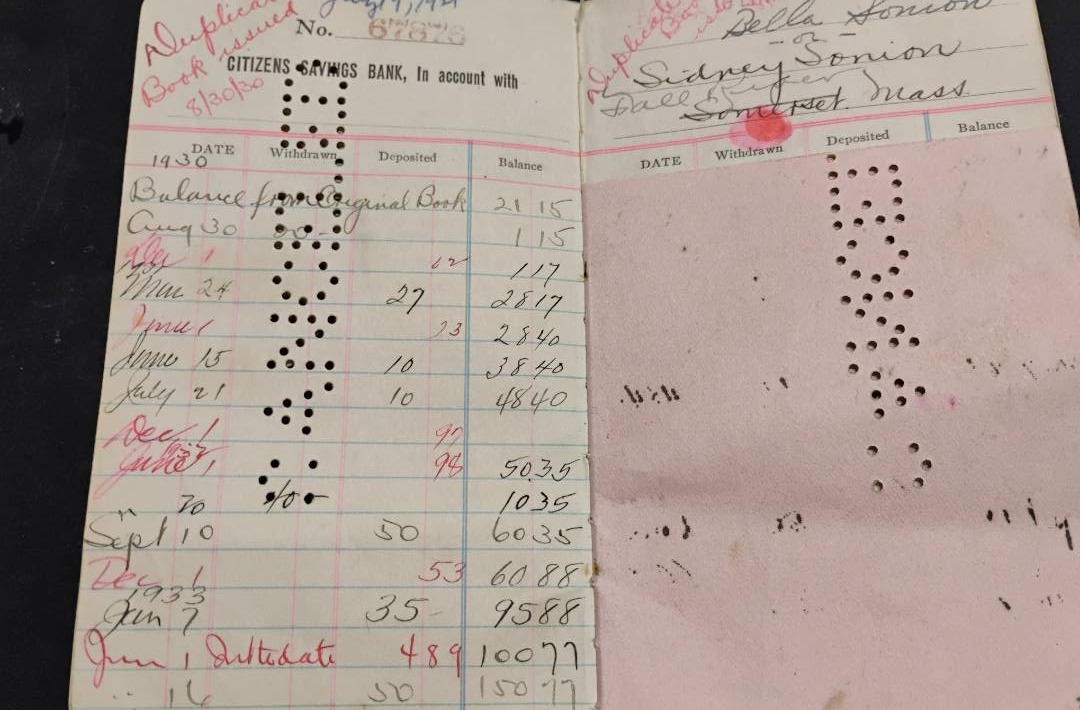 Duplicate
Book issued
8/30/30
No. 67876
CITIZENS SAVINGS BANK, In account with
DATE Withdrawn Deposited Balance
1930
Balance from Original Book 21 15
Aug 30 20- 1 15
Dec 1 02 1 17
Mar 24 27 28 17
June 1 23 28 40
June 15 10 38 40
July 21 10 48 40
Dec 1 97
June 1 98 50 35
" 20 40- 10 35
Sept 10 50 60 35
Dec 1 53 60 88
1933
Jan 7 35- 95 88
Jun 1 Int to date 4 89 100 77
" 16 50 150 77
Duplicate
Della Sonion
- or -
Sidney Sonion
Fall River
Somerset Mass.
DATE Withdrawn Deposited Balance